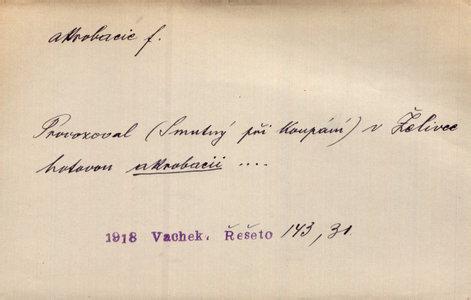 akrobacie f.
Provozoval (Smutný při koupání) v Želivce
hotovou akrobacii ....
1918 Vachek, Řešeto 143, 31.